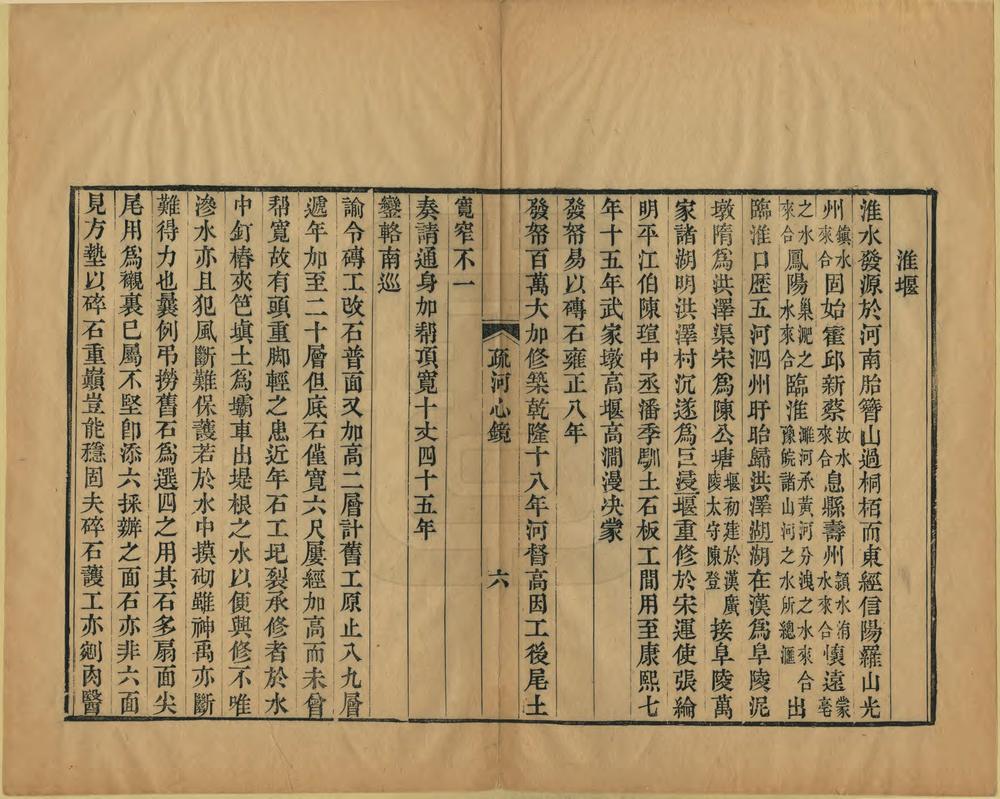 淮堰
淮水發源於河南胎簪山過桐栢而東經信陽羅山光
州㶏水來合固始霍邱新蔡汝水來合息縣壽州潁水淯水來合懷遠蒙亳
之水來合鳳陽巢淝之水來合臨淮濉河承黃河分洩之水來合豫皖諸山河之水所總滙出
臨淮口歷五河泗州盱眙歸洪澤湖湖在漢爲阜陵泥
墩隋爲洪澤渠宋爲陳公塘堰初建於漢廣陵太守陳登接阜陵萬
家諸湖明洪澤村沉遂爲巨浸堰重修於宋運使張綸
明平江伯陳瑄中丞潘季馴土石板工間用至康熙七
年十五年武家墩高堰高澗漫决蒙
發帑易以磚石雍正八年
發帑百萬大加修築乾隆十八年河督高因工後尾土
疏河心鏡
六
寬窄不一
奏請通身加帮頂寬十丈四十五年
鑾輅南巡
諭令磚工改石普面又加高二層計舊工原止八九層
遞年加至二十層但底石僅寬六尺屢經加高而未曾
帮寬故有頭重脚輕之患近年石工圮裂承修者於水
中釘樁夾笆塡土爲壩車出堤根之水以便興修不唯
滲水亦且犯風斷難保護若於水中摸砌雖神禹亦斷
難得力也曩例弔撈舊石爲選四之用其石多扇面尖
尾用爲襯裏已屬不堅卽添六採辦之面石亦非六面
見方墊以碎石重巔豈能穩固夫碎石護工亦剜肉醫